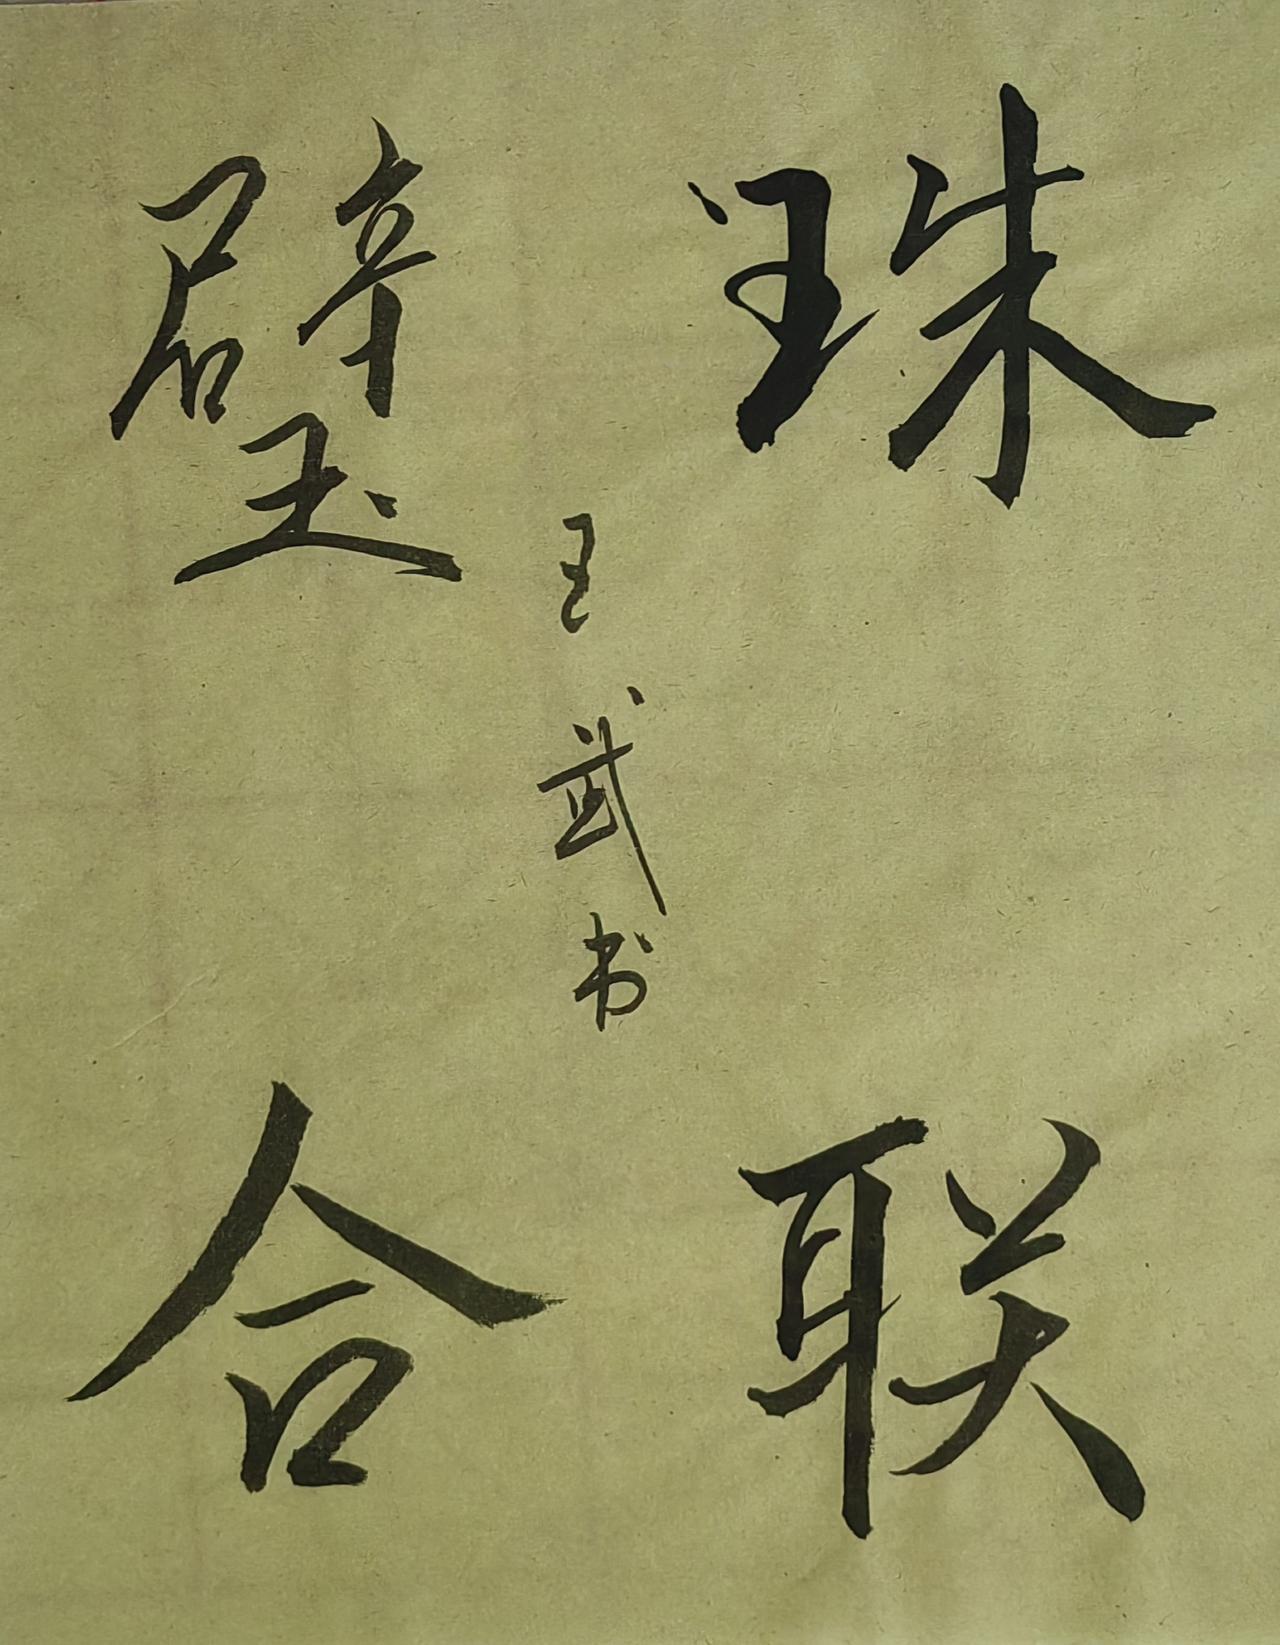 珠联
璧合
王武书